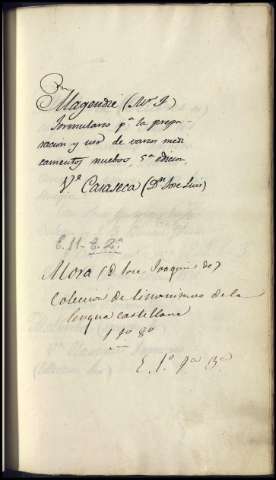 Magendie (Mr F)
Formulario pa la prepa-
racion y uso de varios medi
camentos nuebos, 5a edicion,
Va Casaseca (Dn Jose Luis)
E. 11 - E. 2a
Mora (d Jose Joaquin de)
Coleccion de sinonimos de la
lengua castellana
1 to 8o
E. 1o